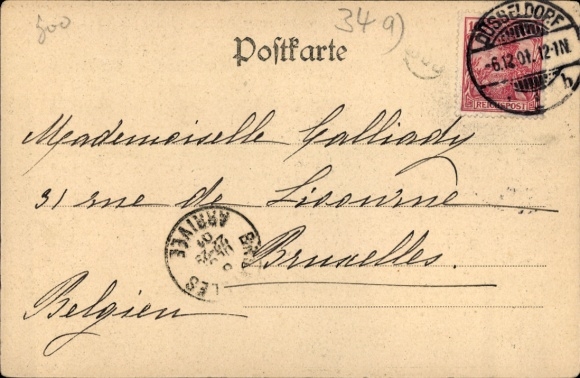 500
34 a)
Postkarte
DÜSSELDORF
-6.12.01. 12-1N.
h
REICHSPOST
Mademoiselle Calliady
31 rue de Livourne
Bruxelles.
Belgien
ARRIVÉE